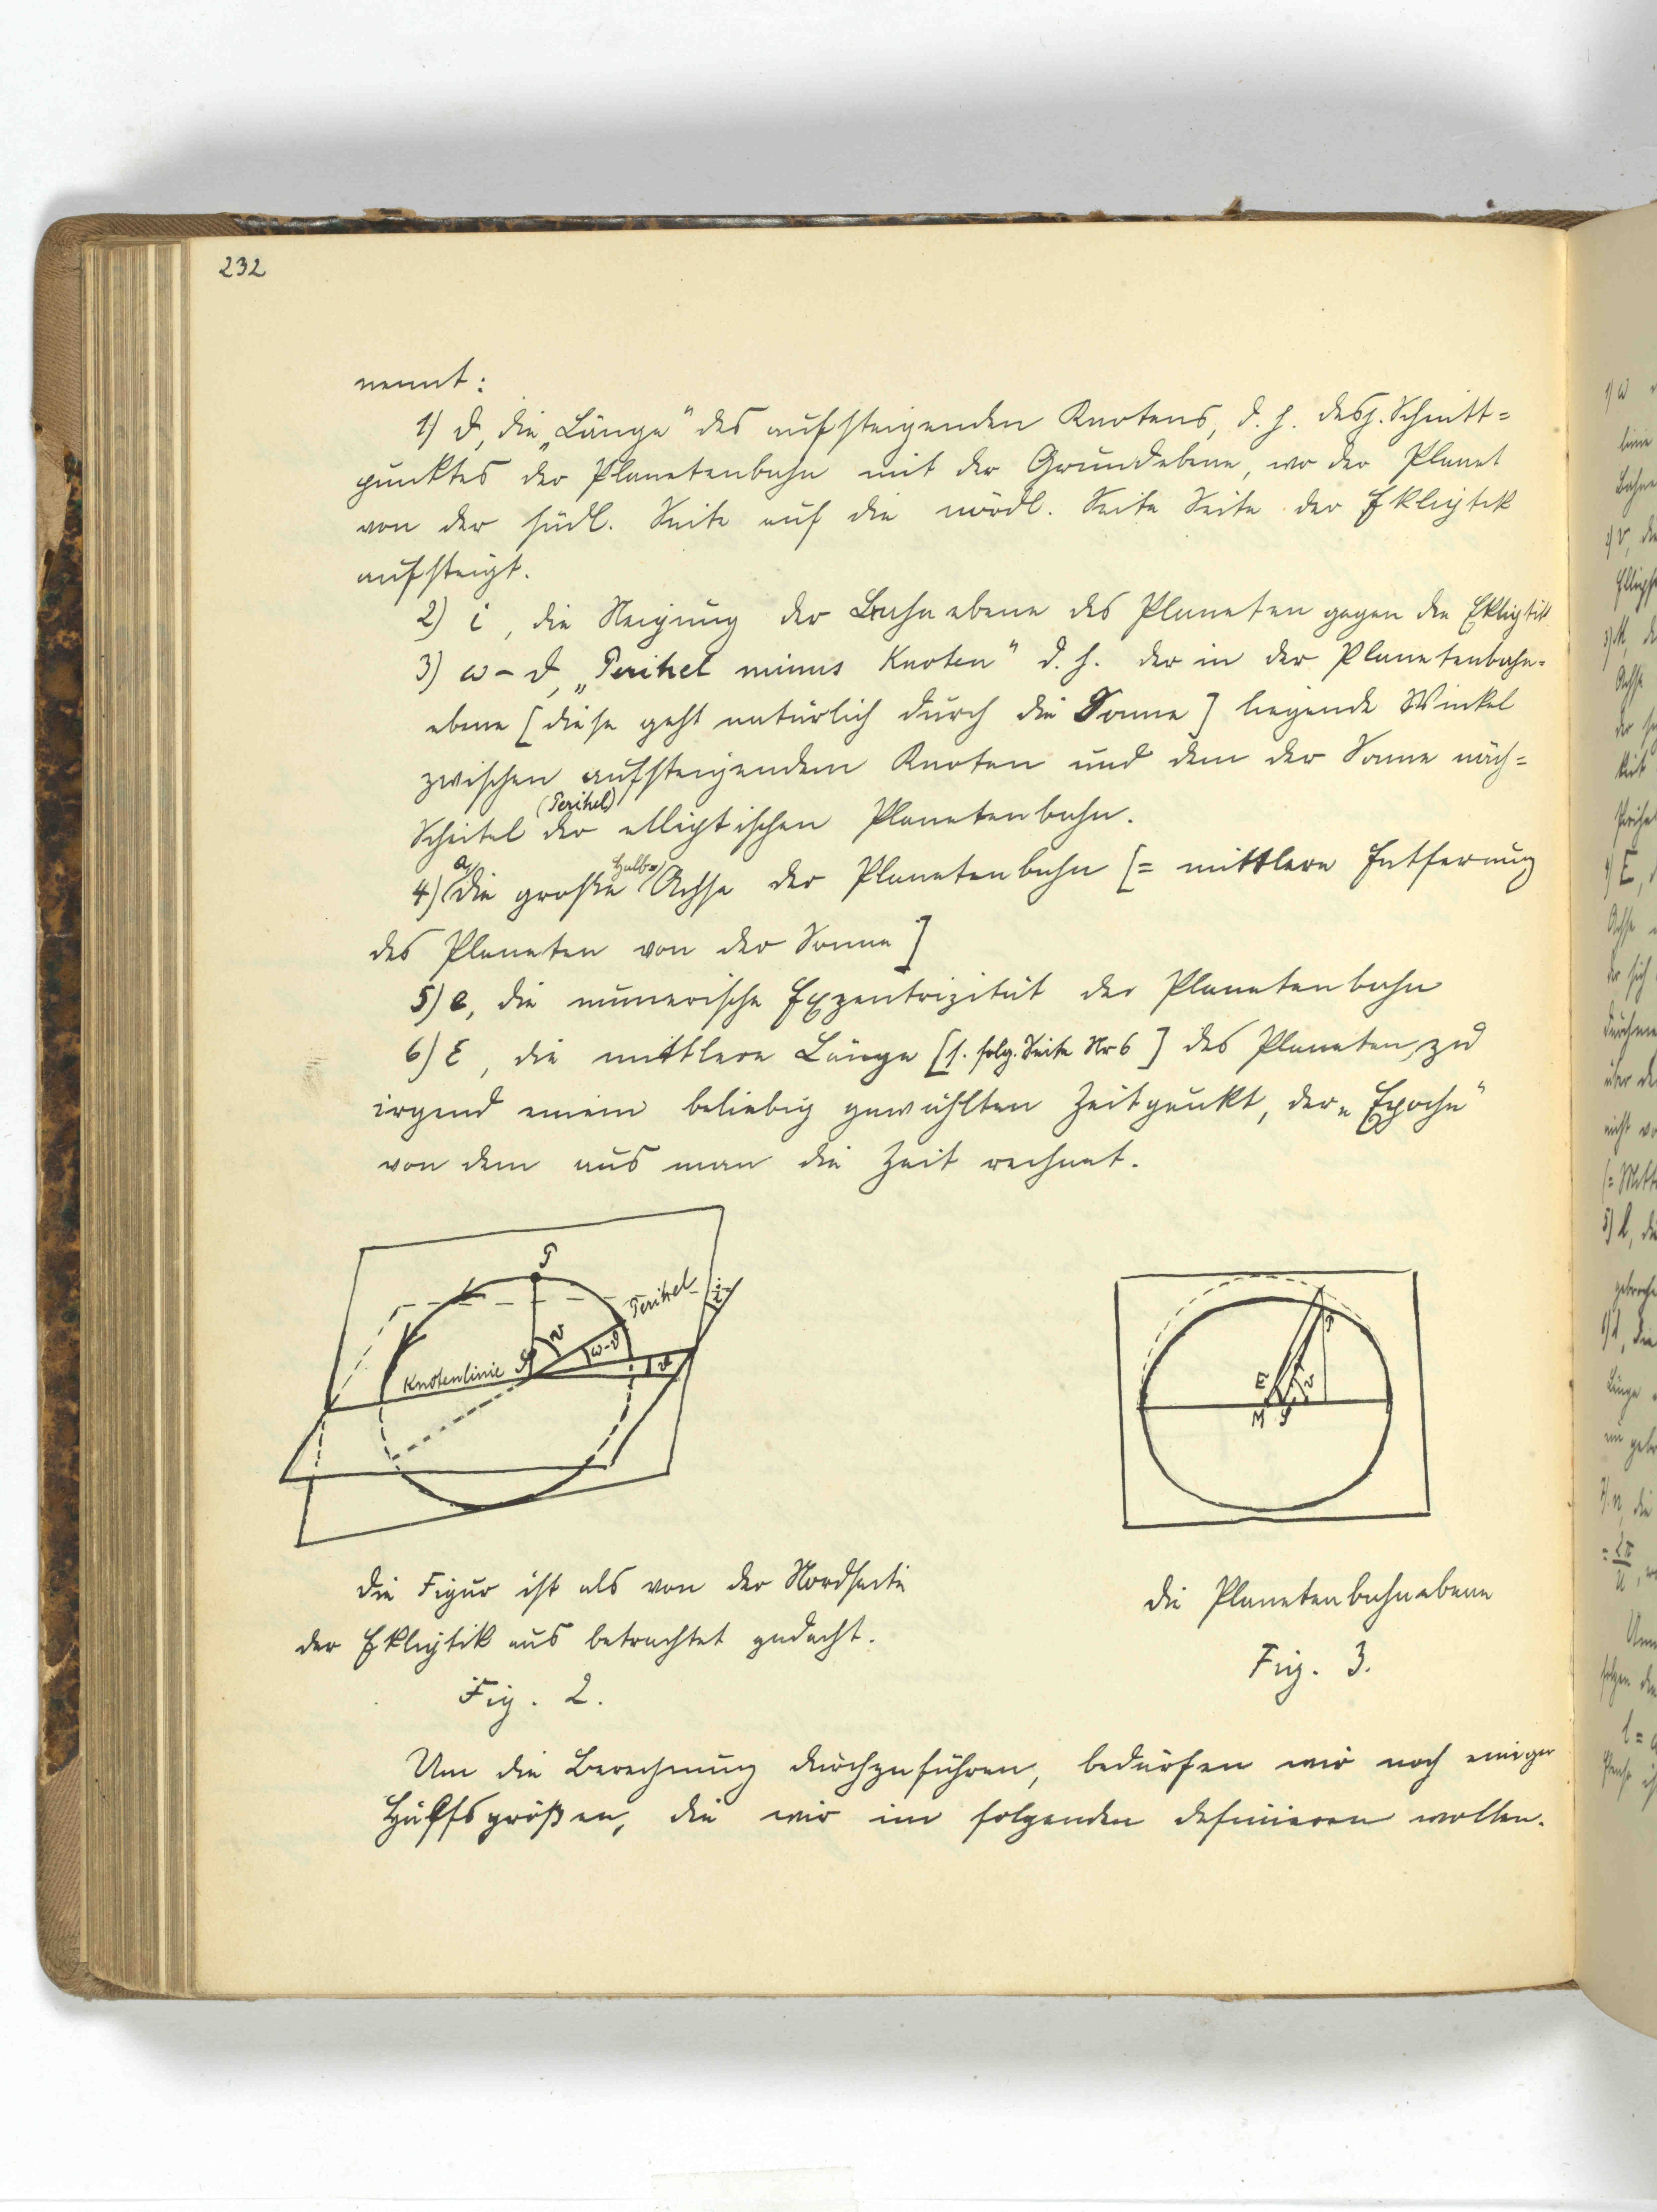 232
nennt:
1) ϑ, die „Länge“ des aufsteigenden Knotens, d. h. desj. Schnitt=
punktes der Planetenbahn mit der Grundebene, wo der Planet
von der südl. Seite auf die nördl. Seite Seite der Ekliptik
aufsteigt.
2) i, die Neigung der Bahnebene des Planeten gegen die Ekliptik
3) ω - ϑ, „Perihel minus Knoten“ d. h. der in der Planetenbahn-
ebene [diese geht natürlich durch die Sonne] liegende Winkel
zwischen aufsteigendem Knoten und dem der Sonne näch=
(Perihel)
Scheitel der elliptischen Planetenbahn.
a, Halb
4) die große Achse der Planetenbahn [= mittlere Entfernung
des Planeten von der Sonne]
5) e, die numerische Exzentrizität der Planetenbahn
6) ε, die mittlere Länge [s. folg. Seite Nr 6] des Planeten, zu
irgend einem beliebig gewählten Zeitpunkt, der „Epoche“
von dem aus man die Zeit rechnet.
P
Perihel
i
v
ω-ϑ
ϑ
Knotenlinie S
P
E v
M S
Die Figur ist als von der Nordseite
der Ekliptik aus betrachtet gedacht.
Fig. 2.
Die Planetenbahnebene
Fig. 3.
Um die Berechnung durchzuführen, bedürfen wir noch einiger
Hülfsgrößen, die wir im folgenden definieren wollen.